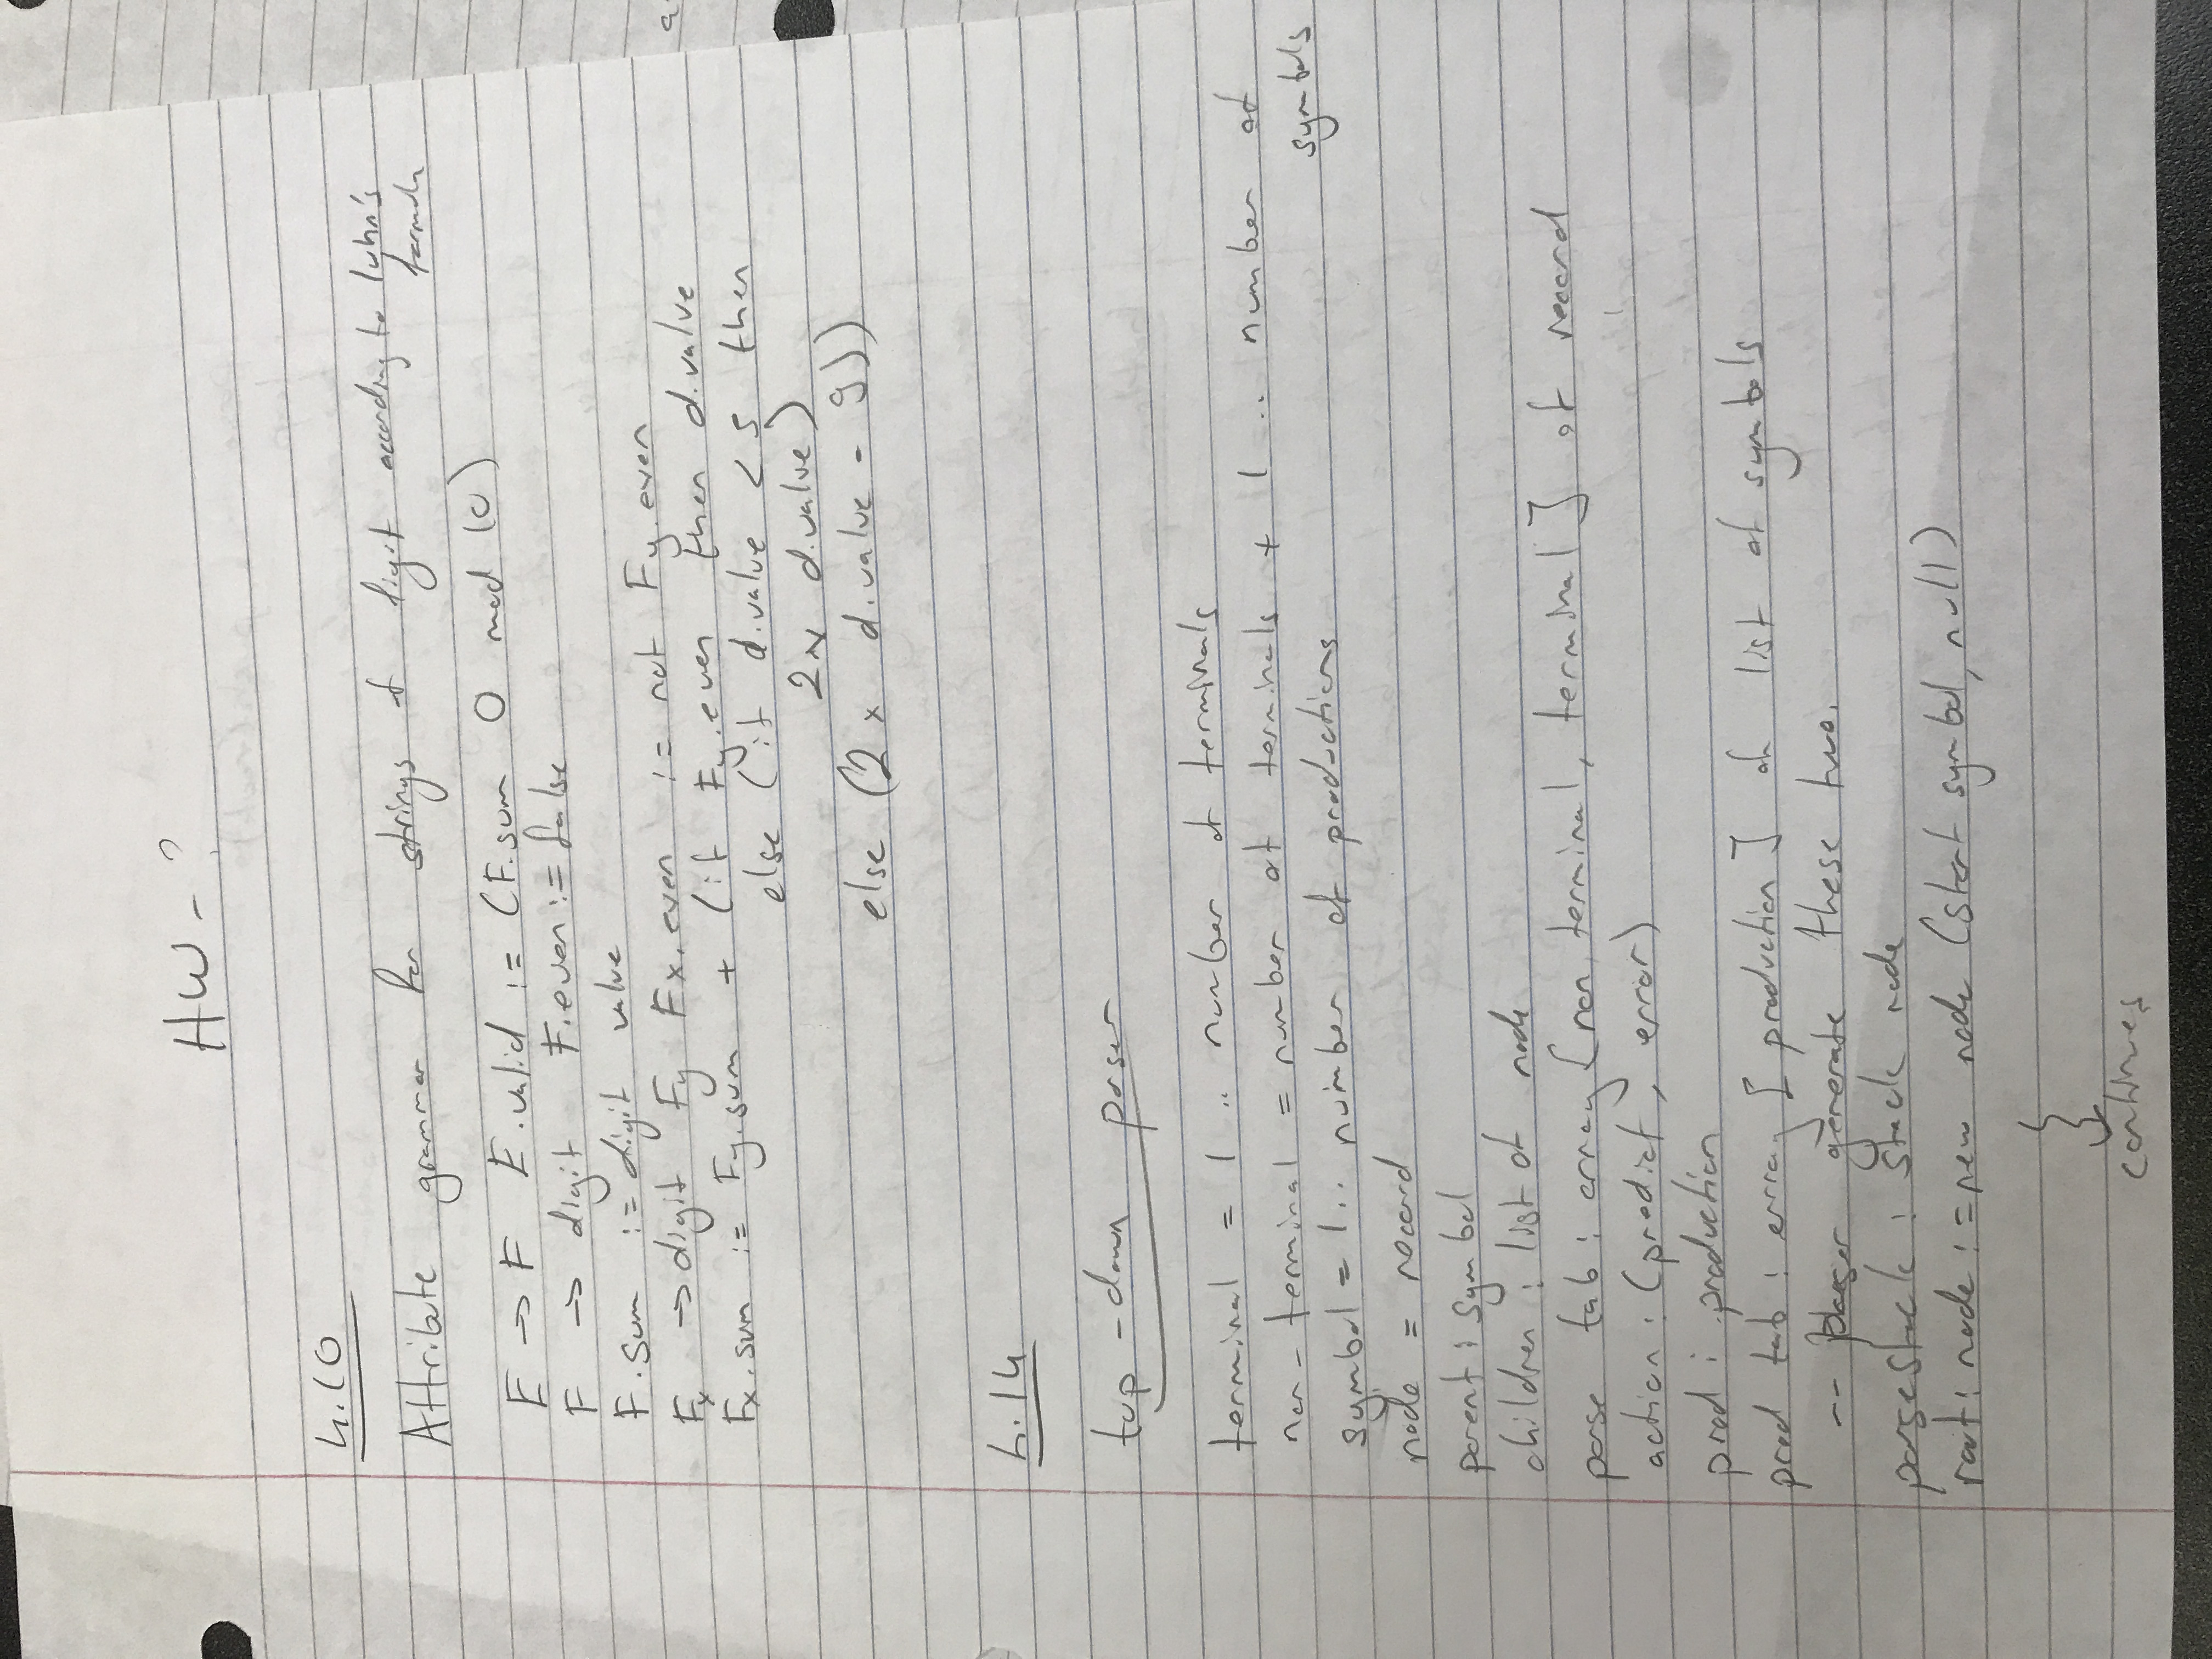 HW - ?
4.10
Attribute grammar for strings of digit according to luhn's
formula
E → F E.valid := (F.sum 0 mod 10)
F → digit F.even := false
F.sum := digit value
Fx → digit Fy Fx.even := not Fy.even
Fx.sum := Fy.sum + (if Fy.even then d.value
else (if d.value < 5 then
2 x d.value)
else (2 x d.value - 9))
4.14
top-down parser
terminal = 1 .. number of terminals
non-terminal = number of terminals + 1 .. number of
symbols
symbol = 1 .. number of productions
node = record
parent : symbol
children : list of node
parse tab : array [non terminal, terminal] of record
action : (predict, error)
prod : production
prod tab : array [production] of list of symbols
-- parser generate these two.
parse stack : stack node
root : node := new node (start symbol, null)
continues